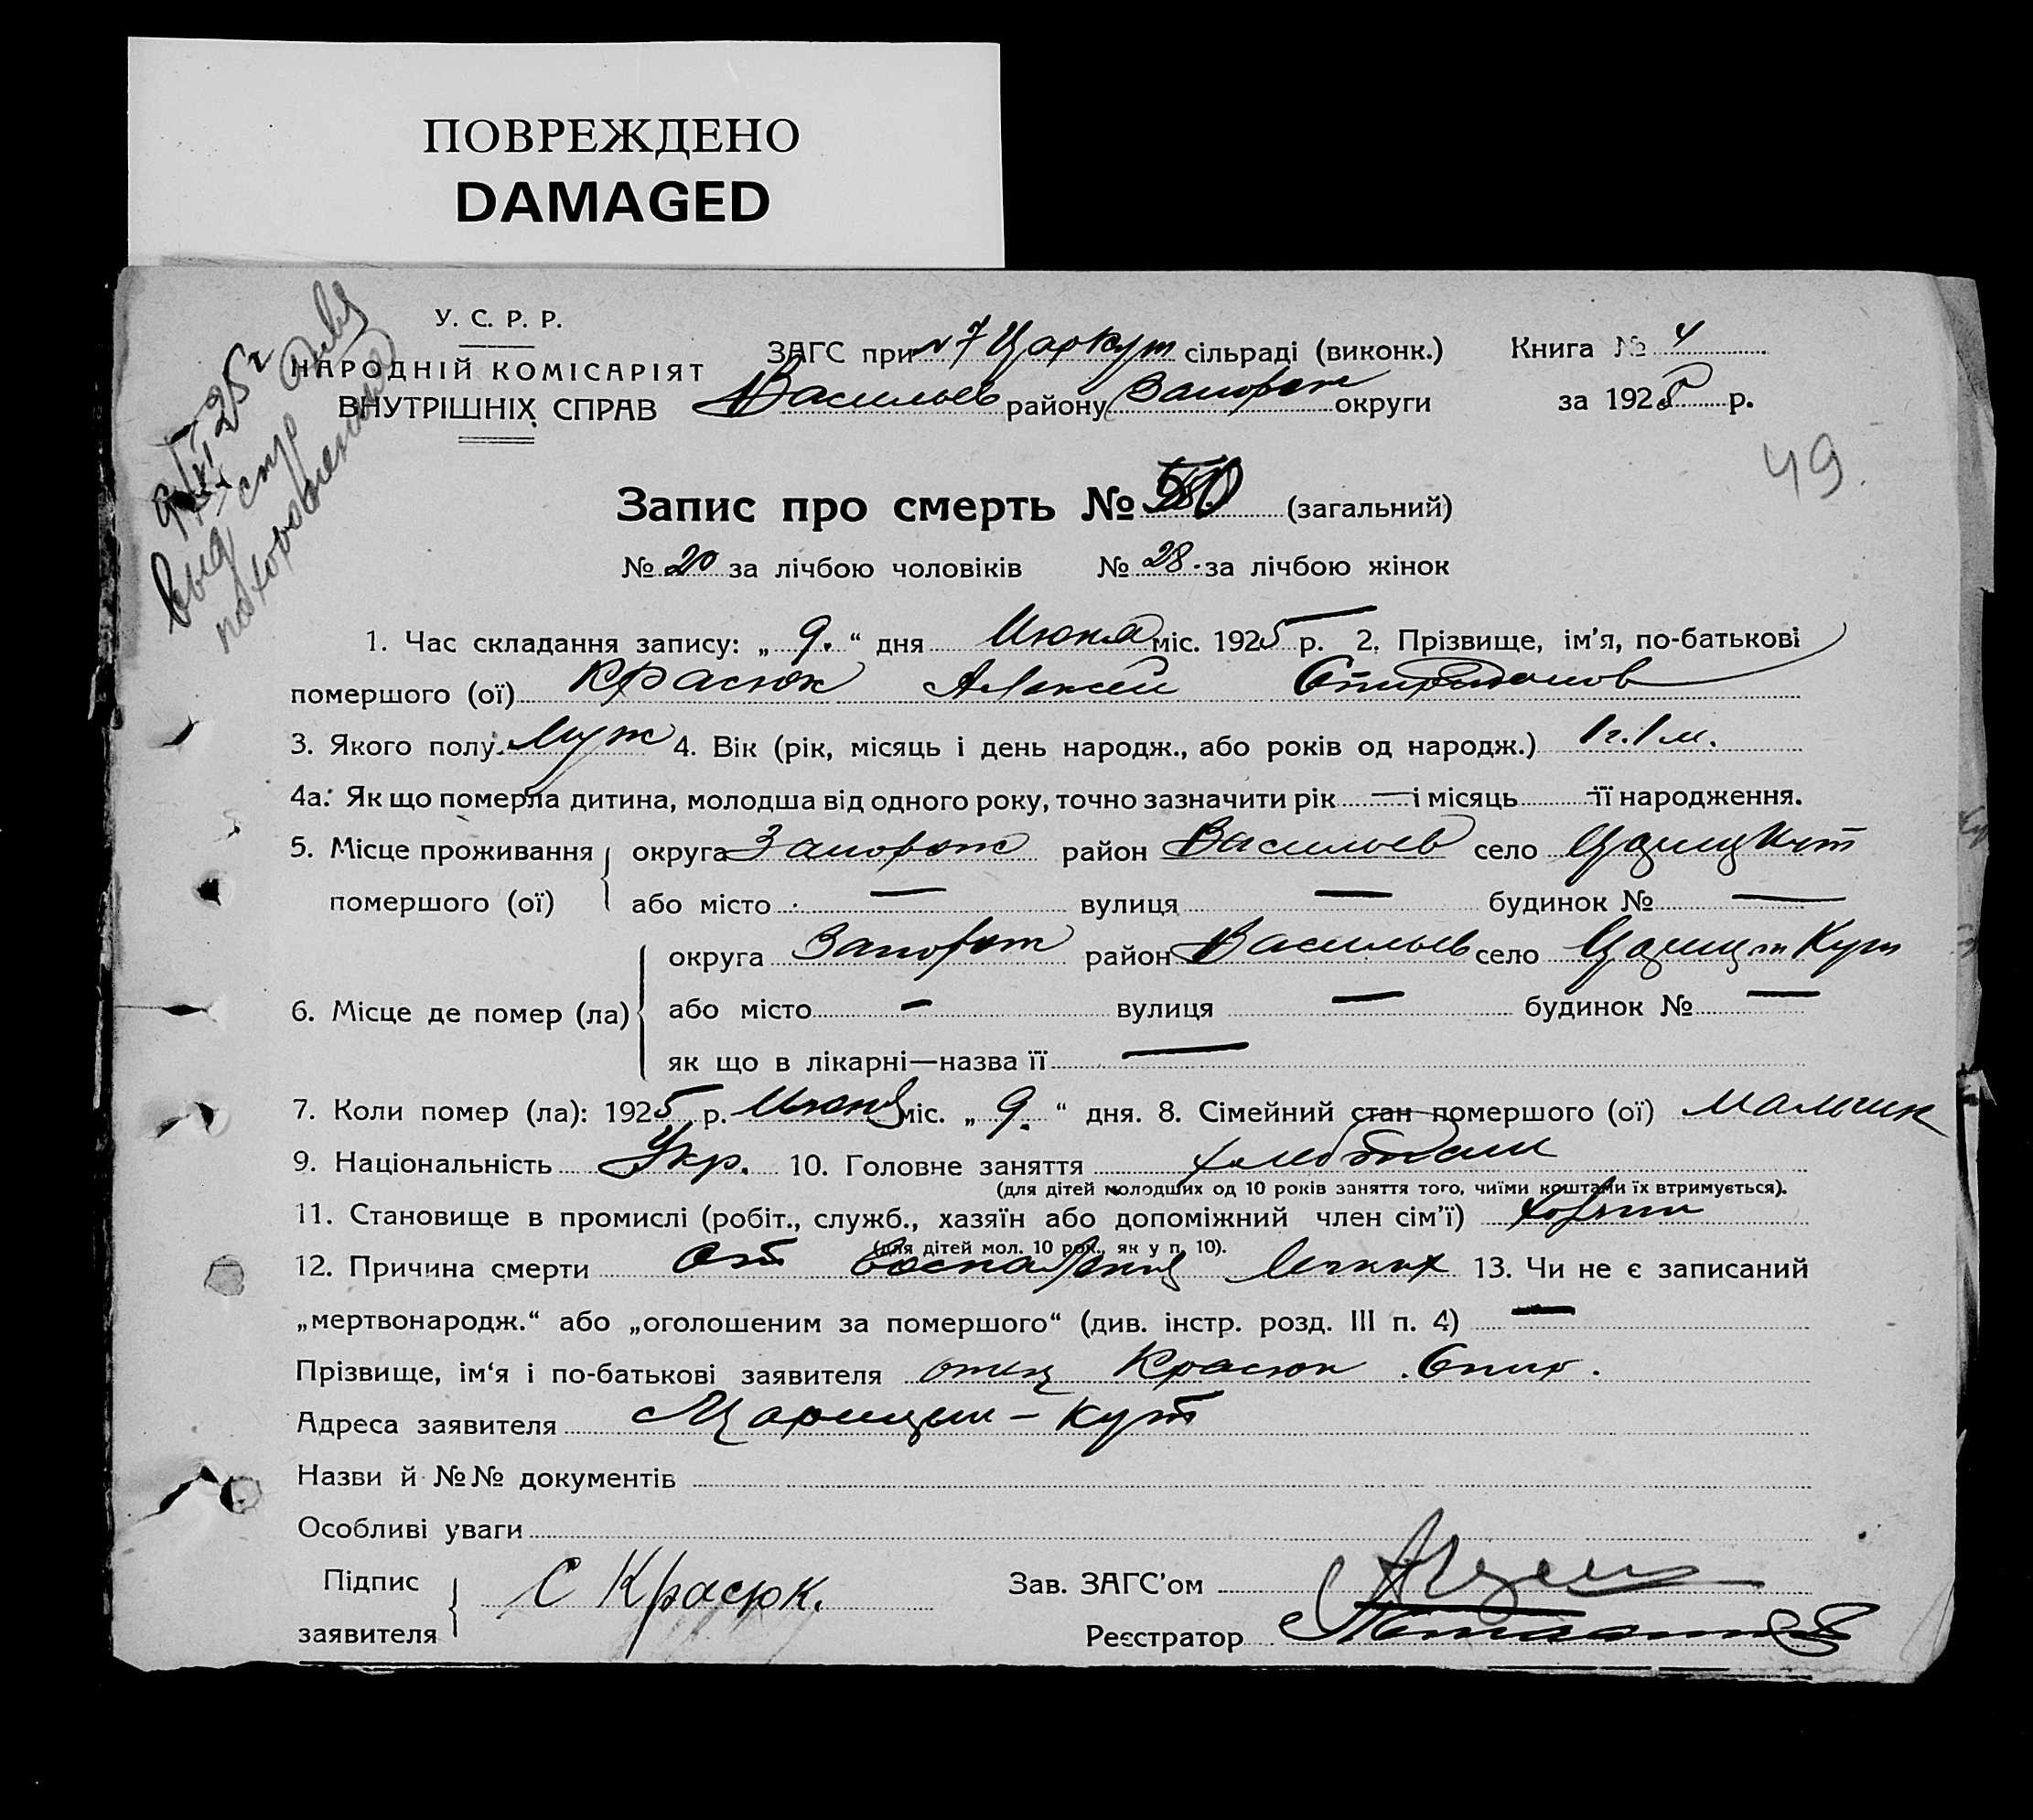 ПОВРЕЖДЕНО
DAMAGED
У. С. Р. Р.
НАРОДНІЙ КОМІСАРІЯТ
ВНУТРІШНІХ СПРАВ
ЗАГС при №7 Царкут сільраді (виконк.) Книга № 4
Васильев району Запорож округи за 1925 р.
49
Запис про смерть № (загальний)
№ 20 за лічбою чоловіків № 28. за лічбою жінок
1. Час складання запису: „ 9. “ дня Июня міс. 1925 р. 2. Прізвище, ім’я, по-батькові
помершого (ої) Красюк Алексей Спиридонов
3. Якого полу Муж 4. Вік (рік, місяць і день народж., або років од народж.) 1 г. 1 м.
4а. Як що померла дитина, молодша від одного року, точно зазначити рік — і місяць — її народження.
5. Місце проживання помершого (ої) округа Запорож район Васильев село Цариц Кут
або місто — вулиця — будинок № —
6. Місце де помер (ла) округа Запорож район Васильев село Царицин Кут
або місто — вулиця — будинок № —
як що в лікарні—назва її —
7. Коли помер (ла): 1925 р. Июня міс. „ 9. “ дня. 8. Сімейний стан помершого (ої) мальчик
9. Національність Укр. 10. Головне заняття хлебопаш
(для дітей молодших од 10 років заняття того, чиїми коштами їх втримується).
11. Становище в промислі (робіт., служб., хазяїн або допоміжний член сім’ї) хозяин
(для дітей мол. 10 рок., як у п. 10).
12. Причина смерти От воспаления легких 13. Чи не є записаний
„мертвонародж.“ або „оголошеним за помершого“ (див. інстр. розд. III п. 4) —
Прізвище, ім‘я і по-батькові заявителя отец Красюк Спир.
Адреса заявителя Царицын - Кут
Назви й №№ документів
Особливі уваги
Підпис заявителя С Красюк.
Зав. ЗАГС’ом
Реєстратор